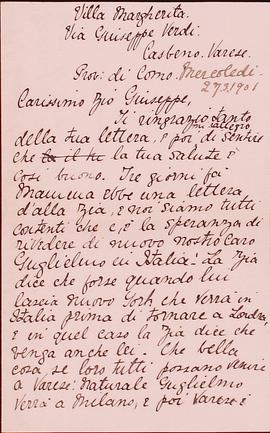 Villa Margherita.
Via Guiseppe Verdi.
Casbeno. Varese.
Prov: di Como. Mercoledi.
27.3.1901
Carissimo Zio Giuseppe,
Ti ringrazio tanto
della tua lettera, e poi di sentire
mi rallegro
che la tua salute è
così buono. Tre giorni fai
Mamma ebbe una lettera
d'alla Zia, e noi siamo tutti
contenti che c'è la speranza di
rividere di nuovo nostro caro
Guglielmo in Italia. La Zia
dice che forse quando lui
lascia Nuovo York che verrà in
Italia prima di tornare a Londra,
e in quel caso la Zia dice che
venga anche lei. Che bella
cosa se loro tutti possano venire
a Varese: Naturale Guglielmo
verrà a Milano, e poi Varese è